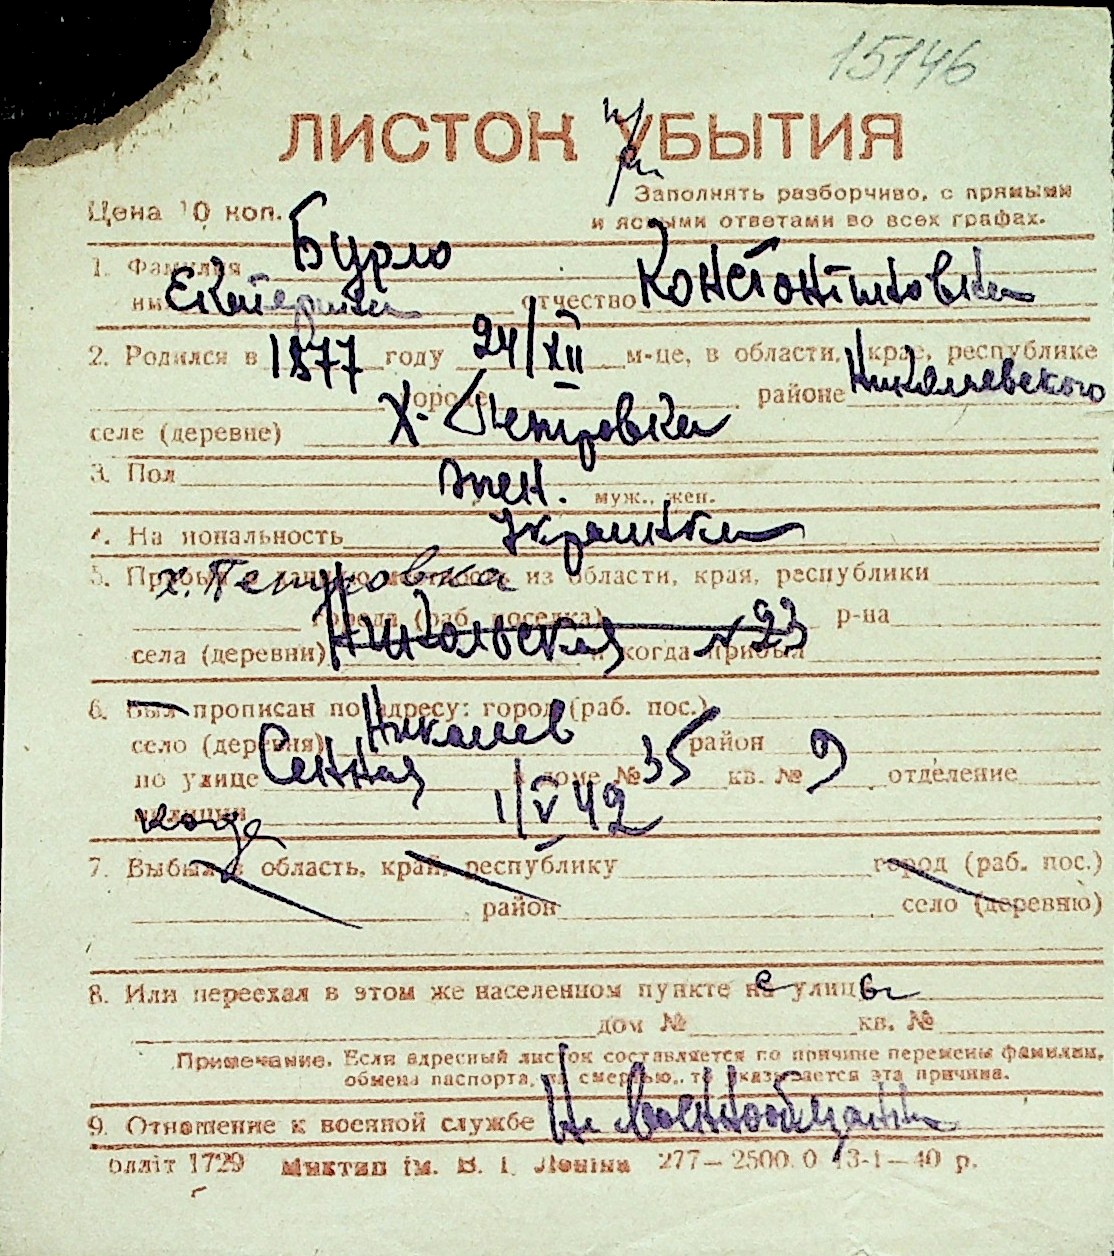 15146
ЛИСТОК УБЫТИЯ
при
Заполнять разборчиво, с прямыми
Цена 10 коп.
и ясными ответами во всех графах.
1. Фамилия Бурло
Екатерина отчество Константиновна
2. Родился в 1877 году 24/XII м-це, в области, крае, республике
городе районе Николаевского
селе (деревне) х. Петровка
3. Пол жен.
муж., жен.
4. Национальность Украинка
5. Прибыл в данную местность из области, края, республики
х. Петровка
города (раб. поселка) р-на
села (деревни) и когда прибыл
Никольская № 23
6. Был прописан по адресу: город (раб. пос.)
Николаев
село (деревня) район
по улице Сенная в доме № 35 кв. № 9 отделение
милиции
когда 1/V 42
7. Выбыл в область, край, республику город (раб. пос.)
район село (деревню)
8. Или переехал в этом же населенном пункте с улицы
дом № кв. №
Примечание. Если адресный листок составляется по причине перемены фамилии,
обмена паспорта, за смертью, то указывается эта причина.
9. Отношение к военной службе Не военнообязанна
Облліт 1729 Миктип ім. В. І. Леніна 277—2500.0 13-1—40 р.